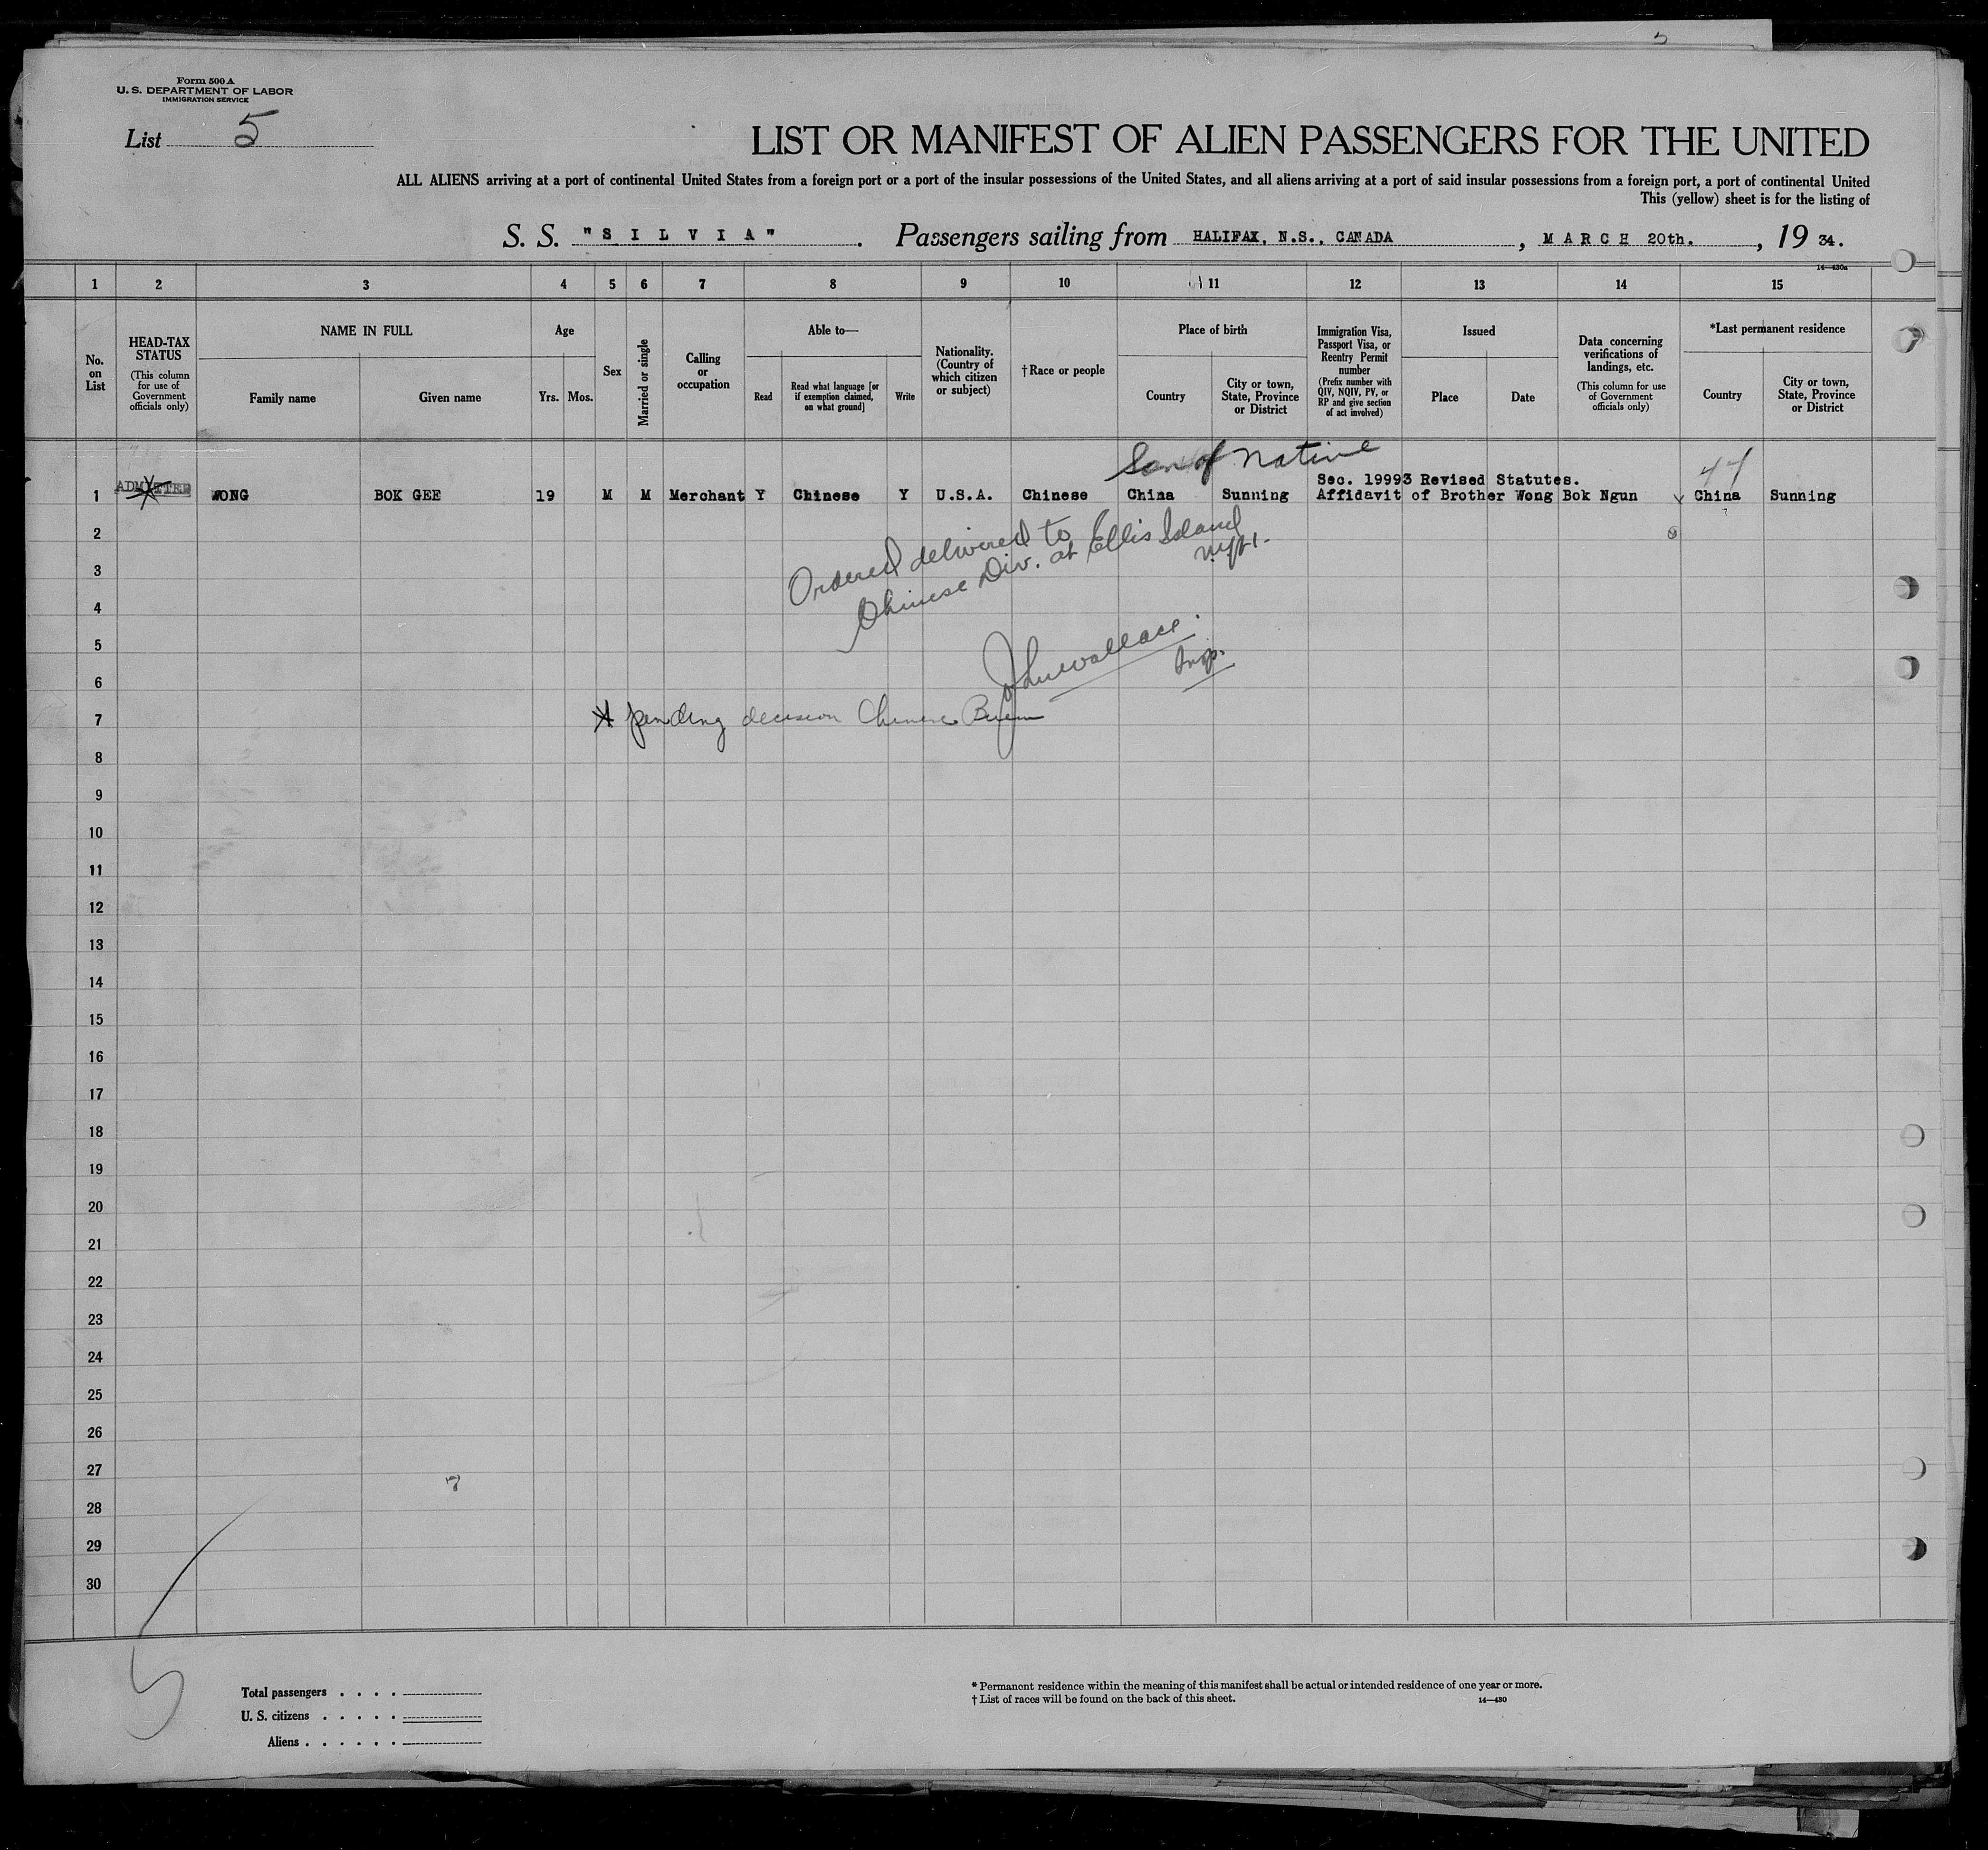 5
Form 500 A
U. S. DEPARTMENT OF LABOR
IMMIGRATION SERVICE
List 5
LIST OR MANIFEST OF ALIEN PASSENGERS FOR THE UNITED
ALL ALIENS arriving at a port of continental United States from a foreign port or a port of the insular possessions of the United States, and all aliens arriving at a port of said insular possessions from a foreign port, a port of continental United
This (yellow) sheet is for the listing of
S. S. "SILVIA". Passengers sailing from HALIFAX, N.S., CANADA, MARCH 20th., 19 34.
14—430a
1 2 3 4 5 6 7 8 9 10 11 12 13 14 15
No. on List
HEAD-TAX STATUS
(This column for use of Government officials only)
NAME IN FULL
Family name Given name
Age
Yrs. Mos.
Sex
Married or single
Calling or occupation
Able to—
Read
Read what language [or if exemption claimed, on what ground]
Write
Nationality. (Country of which citizen or subject)
†Race or people
Place of birth
Country
City or town, State, Province or District
Immigration Visa, Passport Visa, or Reentry Permit number
(Prefix number with QIV, NQIV, PV, or RP and give section of act involved)
Issued
Place Date
Data concerning verifications of landings, etc.
(This column for use of Government officials only)
*Last permanent residence
Country
City or town, State, Province or District
Son of Native
44
Sec. 19993 Revised Statutes.
1 ADMITTED WONG BOK GEE 19 M M Merchant Y Chinese Y U.S.A. Chinese China Sunning Affidavit of Brother Wong Bok Ngun China Sunning
2
Ordered delivered to
3
Chinese Div. at Ellis Island
4
5
Jno Wallace.
Insp.
6
7 X pending decision Chinese Bureau
8
9
10
11
12
13
14
15
16
17
18
19
20
21
22
23
24
25
26
27
28
29
30
5
Total passengers . . . .
U. S. citizens . . . . .
Aliens . . . . . .
* Permanent residence within the meaning of this manifest shall be actual or intended residence of one year or more.
† List of races will be found on the back of this sheet.
14—430